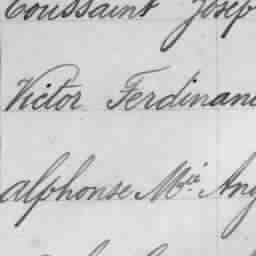 Toussaint Josep
Victor Ferdinand
alphonse Mie Ang